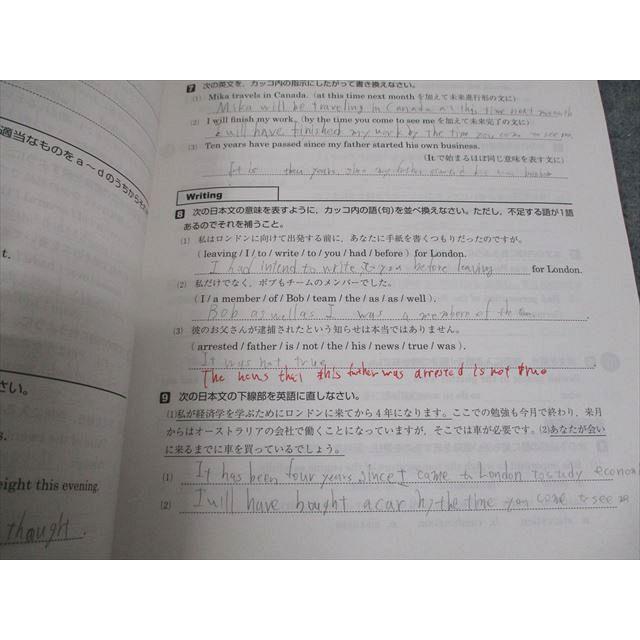 7 次の英文を，カッコ内の指示にしたがって書き換えなさい。
(1) Mika travels in Canada. (at this time next month を加えて未来進行形の文に)
Mika will be traveling in Canada at this time next month
(2) I will finish my work. (by the time you come to see me を加えて未来完了の文に)
I will have finished my work by the time you come to see me
(3) Ten years have passed since my father started his own business.
(It で始まるほぼ同じ意味を表す文に)
It is years since my father started his own business
適当なものを a～d のうちから
Writing
8 次の日本文の意味を表すように，カッコ内の語(句)を並べ換えなさい。ただし，不足する語が1語
あるのでそれを補うこと。
(1) 私はロンドンに向けて出発する前に，あなたに手紙を書くつもりだったのですが。
( leaving / I / to / write / to / you / had / before ) for London.
I had intend to write to you before leaving for London.
(2) 私だけでなく，ボブもチームのメンバーでした。
( I / a member / of / Bob / team / the / as / as / well ).
Bob as well as I was a members of the team
(3) 彼のお父さんが逮捕されたという知らせは本当ではありません。
( arrested / father / is / not / the / his / news / true / was ).
It was not true
The news that his father was arrested is not true
9 次の日本文の下線部を英語に直しなさい。
(1)私が経済学を学ぶためにロンドンに来てから4年になります。ここでの勉強も今月で終わり，来月
からはオーストラリアの会社で働くことになっていますが，そこでは車が必要です。(2)あなたが会い
に来るまでに車を買っているでしょう。
(1) It has been four years since I came to London to study econom
(2) I will have bought a car by the time you come to see me
t.
さい。
s.
eight this evening.
thought.